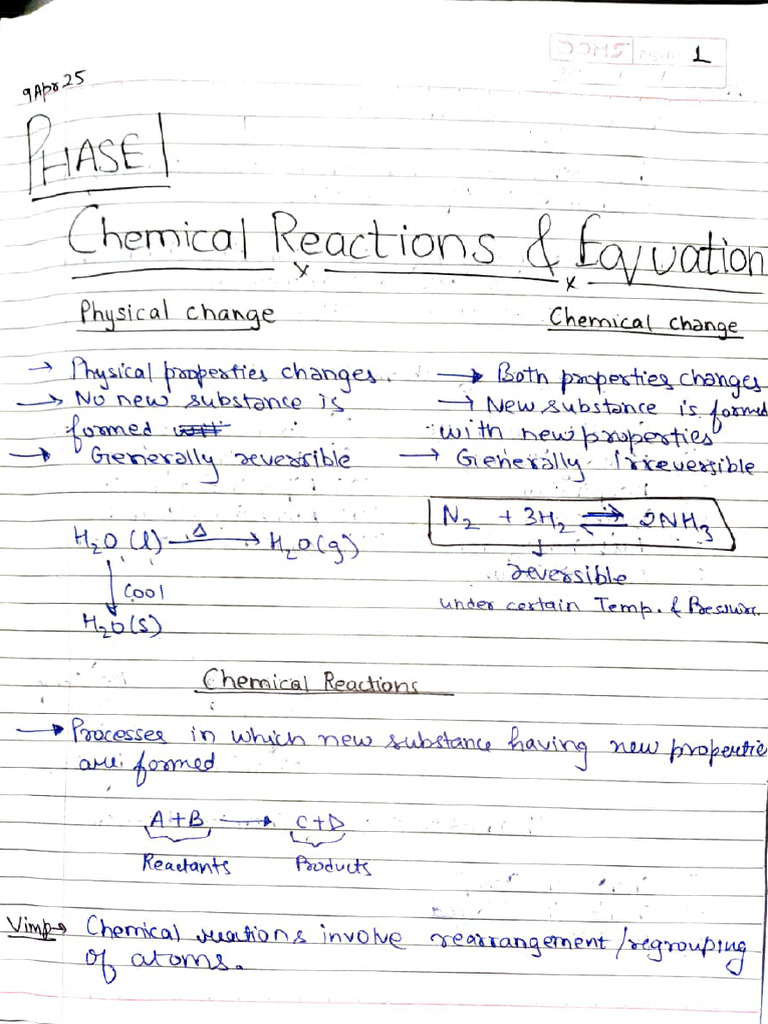 1
9 Apr 25
PHASE 1
Chemical Reactions & Equation
Physical change
→ Physical properties changes.
→ No new substance is
formed
→ Generally reversible
H₂O (l) —Δ→ H₂O(g)
↓ Cool
H₂O(s)
Chemical change
→ Both properties changes
→ New substance is formed
with new properties
→ Generally Irreversible
N₂ + 3H₂ ⇌ 2NH₃
↓
reversible
under certain Temp. &
Chemical Reactions
→ Processes in which new substance having new propertie
are formed
A+B → C+D
Reactants Products
Vimp→ Chemical reactions involve rearrangement/regrouping
of atoms.